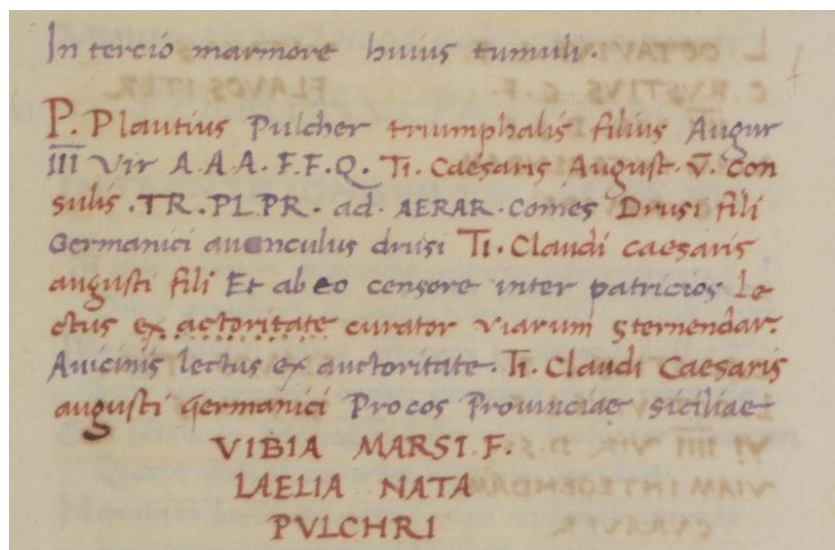 In tercio marmore huius tumuli.
P. Plautius Pulcher triumphalis filius Augur
III Vir A.A.A.F.F.Q. Ti. Caesaris August. V. con
sulis. TR. PL. PR. ad. AERAR. comes Drusi fili
Germanici avunculus drusi Ti. Claudi caesaris
augusti fili Et ab eo censore inter patricios Le
ctus ex actoritate curator viarum sternendar.
Avicinis lectus ex auctoritate. Ti. Claudi Caesaris
augusti germanici Procos Provinciae siciliae
VIBIA MARSI. F.
LAELIA NATA
PVLCHRI